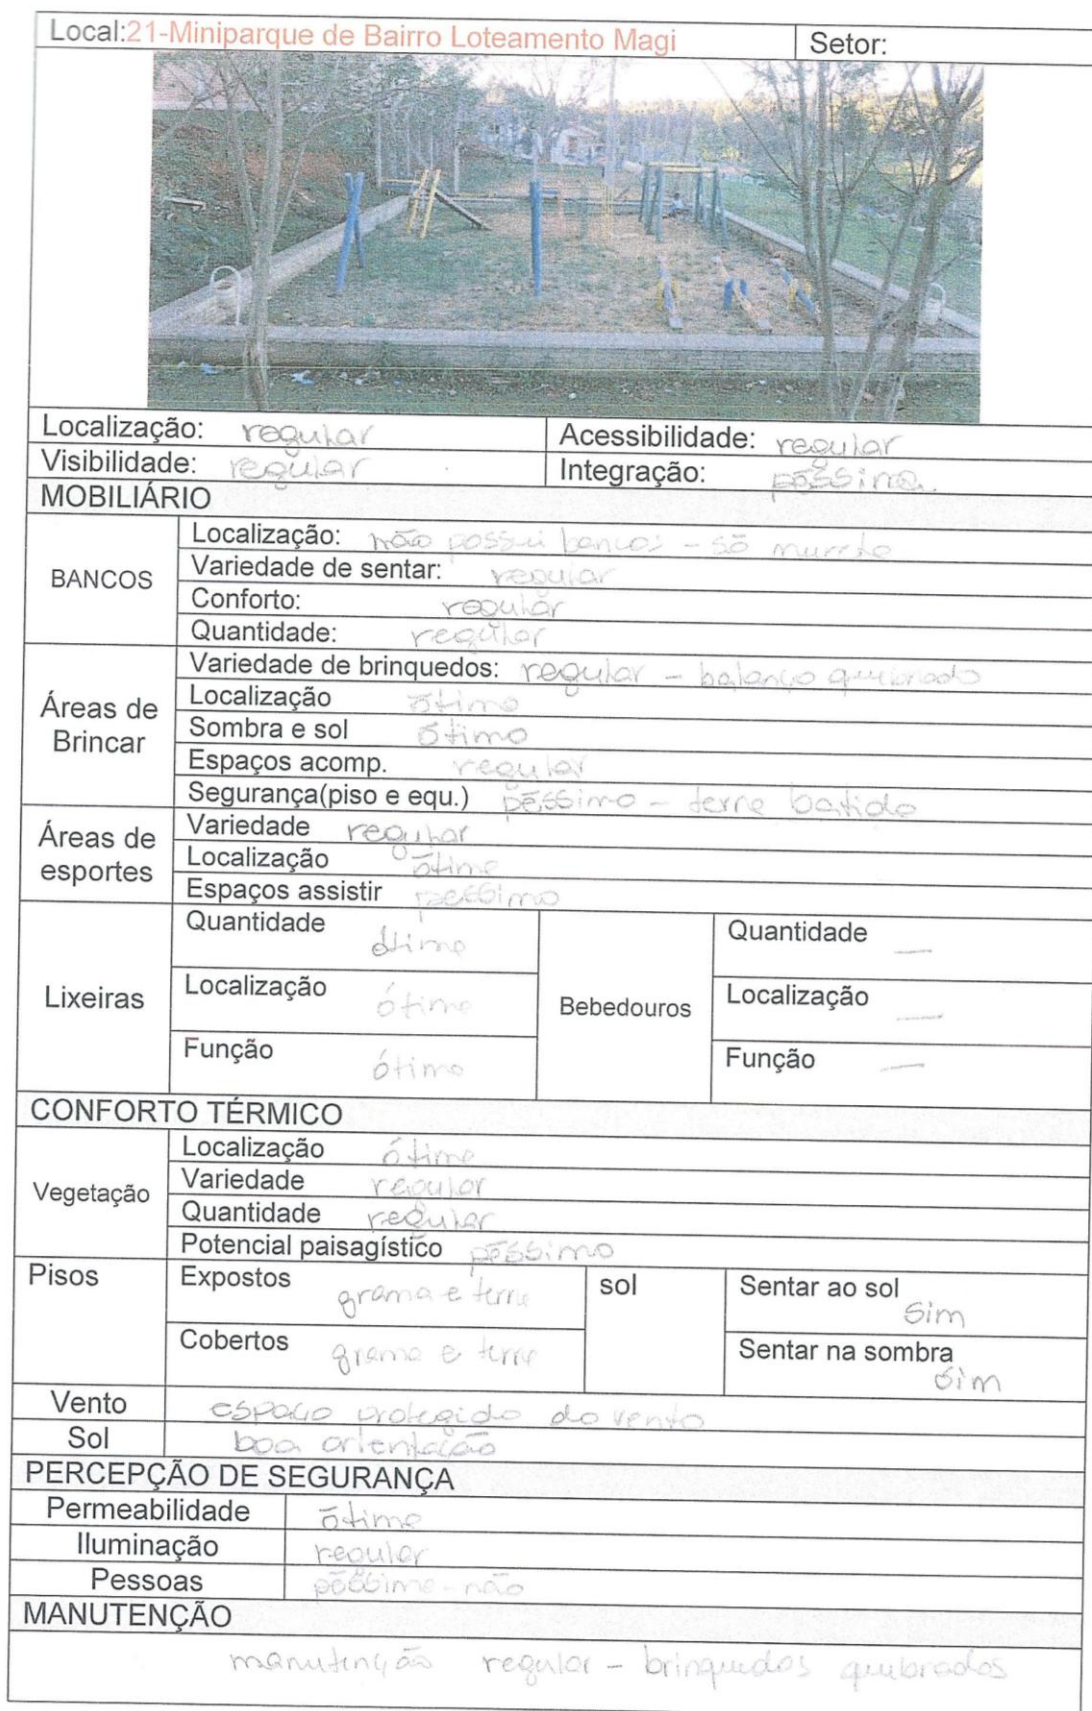 Local:21-Miniparque de Bairro Loteamento Magi Setor:
Localização: regular Acessibilidade: regular
Visibilidade: regular Integração: péssima
MOBILIÁRIO
BANCOS
Localização: não possui bancos - só mureta
Variedade de sentar: regular
Conforto: regular
Quantidade: regular
Áreas de Brincar
Variedade de brinquedos: regular - balanço quebrado
Localização ótimo
Sombra e sol ótimo
Espaços acomp. regular
Segurança(piso e equ.) péssimo - terra batida
Áreas de esportes
Variedade regular
Localização ótimo
Espaços assistir péssimo
Lixeiras
Quantidade ótimo
Localização ótimo
Função ótimo
Bebedouros
Quantidade —
Localização —
Função —
CONFORTO TÉRMICO
Vegetação
Localização ótimo
Variedade regular
Quantidade regular
Potencial paisagístico péssimo
Pisos
Expostos grama e terra
Cobertos grama e terra
sol
Sentar ao sol Sim
Sentar na sombra Sim
Vento espaço protegido do vento
Sol boa orientação
PERCEPÇÃO DE SEGURANÇA
Permeabilidade ótimo
Iluminação regular
Pessoas péssimo - não
MANUTENÇÃO
manutenção regular - brinquedos quebrados